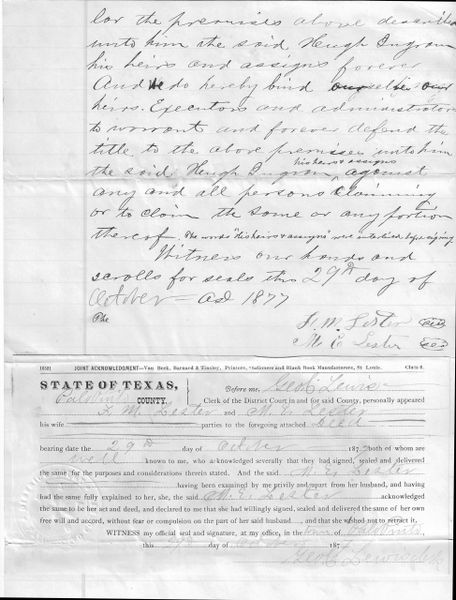 for the premises above described
unto him the said, Hugh Ingram
his heirs and assigns forever
And do hereby bind ourselves our
heirs. Executors and administrators
to warrant and forever defend the
title to the above premises unto him
his heirs & assigns
the said, Hugh Ingram, against
any and all persons claiming
or to claim the same or any portion
thereof The words "his heirs & assigns" was interlined before signing
Witness our hands and
scrolls for seals this 29th day of
October AD 1877
F. M. Lester
M. E. Lester
JOINT ACKNOWLEDGMENT—Van Beek, Barnard & Tinsley, Printers, Stationers and Blank Book Manufacturers, St. Louis. Class 4.
STATE OF TEXAS, Before me, Geo. C. Lewis
COUNTY. Clerk of the District Court in and for said County, personally
appeared F. M. Lester and M. E. Lester
his wife parties to the foregoing attached Deed
bearing date the 29th day of October 187 both of whom are
well known to me, who acknowledged severally that they had signed, sealed and delivered
the same for the purposes and considerations therein stated. And the said M. E. Lester
having been examined by me privily and apart from her husband, and having
had the same fully explained to her, she, the said M. E. Lester acknowledged
the same to be her act and deed, and declared to me that she had willingly signed, sealed and delivered the same of her own
free will and accord, without fear or compulsion on the part of her said husband and that she wished not to retract it.
WITNESS my official seal and signature, at my office, in the
this day of 187
Geo. C. Lewis